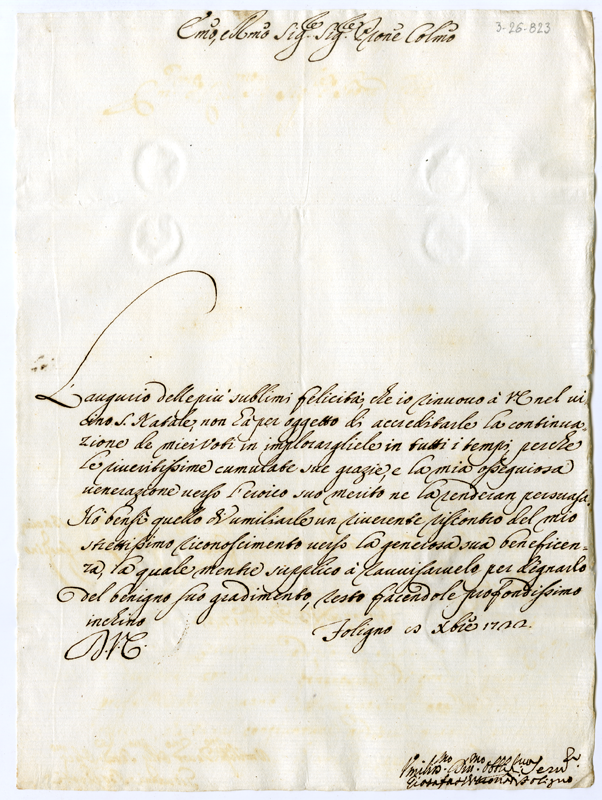 Em̃o, e Rm̃o Sig.re Sig.re Pron̄e Colm̃o
3-26-823
L'augurio delle più sublimi felicità, che io rinuovo à VE nel vi
cino S. Natale, non hà per oggetto di accreditarle la continua,
zione de miei Voti in implorargliele in tutti i tempi, perche
le riveritissime cumulate sue grazie, e la mia ossequiosa
venerazione verso l'eroico suo merito ne la renderan persuasa.
Hò bensì quello d'umiliarle un riverente riscontro del mio
strettissimo riconoscimento verso la generosa sua beneficen=
za, la quale, mentre supplico à ravvisarvelo per degnarlo
del benigno suo gradimento, resto facendole profondissimo
inchino
Foligno Xbr̄e 1722
D VE.
Umiliss.mo Div.mo Obb.mo Serv.re
Vescovo di Foligno